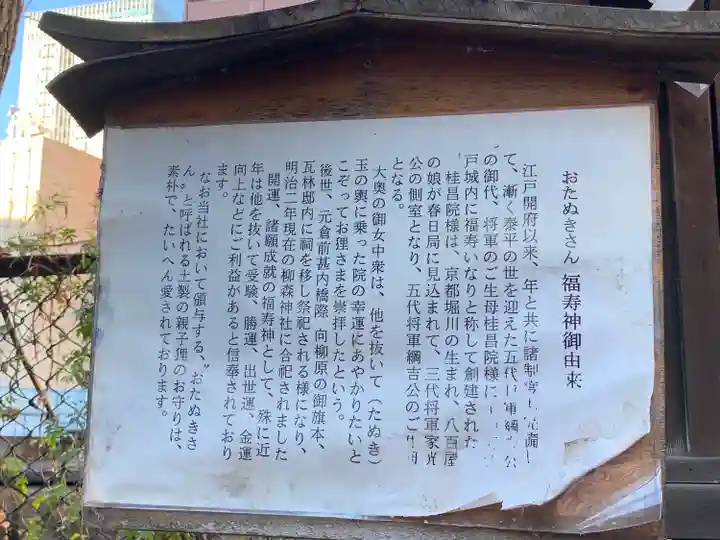 おたぬきさん 福寿神御由来
江戸開府以来、年と共に諸制度も完備し
て、漸く泰平の世を迎えた五代将軍綱吉公
の御代、将軍のご生母桂昌院様に
戸城内に福寿いなりと称して創建された
桂昌院様は、京都堀川の生まれ、八百屋
の娘が春日局に見込まれて、三代将軍家光
公の側室となり、五代将軍綱吉公のご生母
となる。
大奥の御女中衆は、他を抜いて(たぬき)
玉の輿に乗った院の幸運にあやかりたいと
こぞってお狸さまを崇拝したという。
後世、元倉前甚内橋際、向柳原の御旗本、
瓦林邸内に祠を移し祭祀される様になり、
明治二年現在の柳森神社に合祀されました
開運、諸願成就の福寿神として、殊に近
年は他を抜いて受験、勝運、出世運、金運
向上などにご利益があると信奉されており
ます。
なお当社において頒与する、〝おたぬきさ
ん〟と呼ばれる土製の親子狸のお守りは、
素朴で、たいへん愛されております。